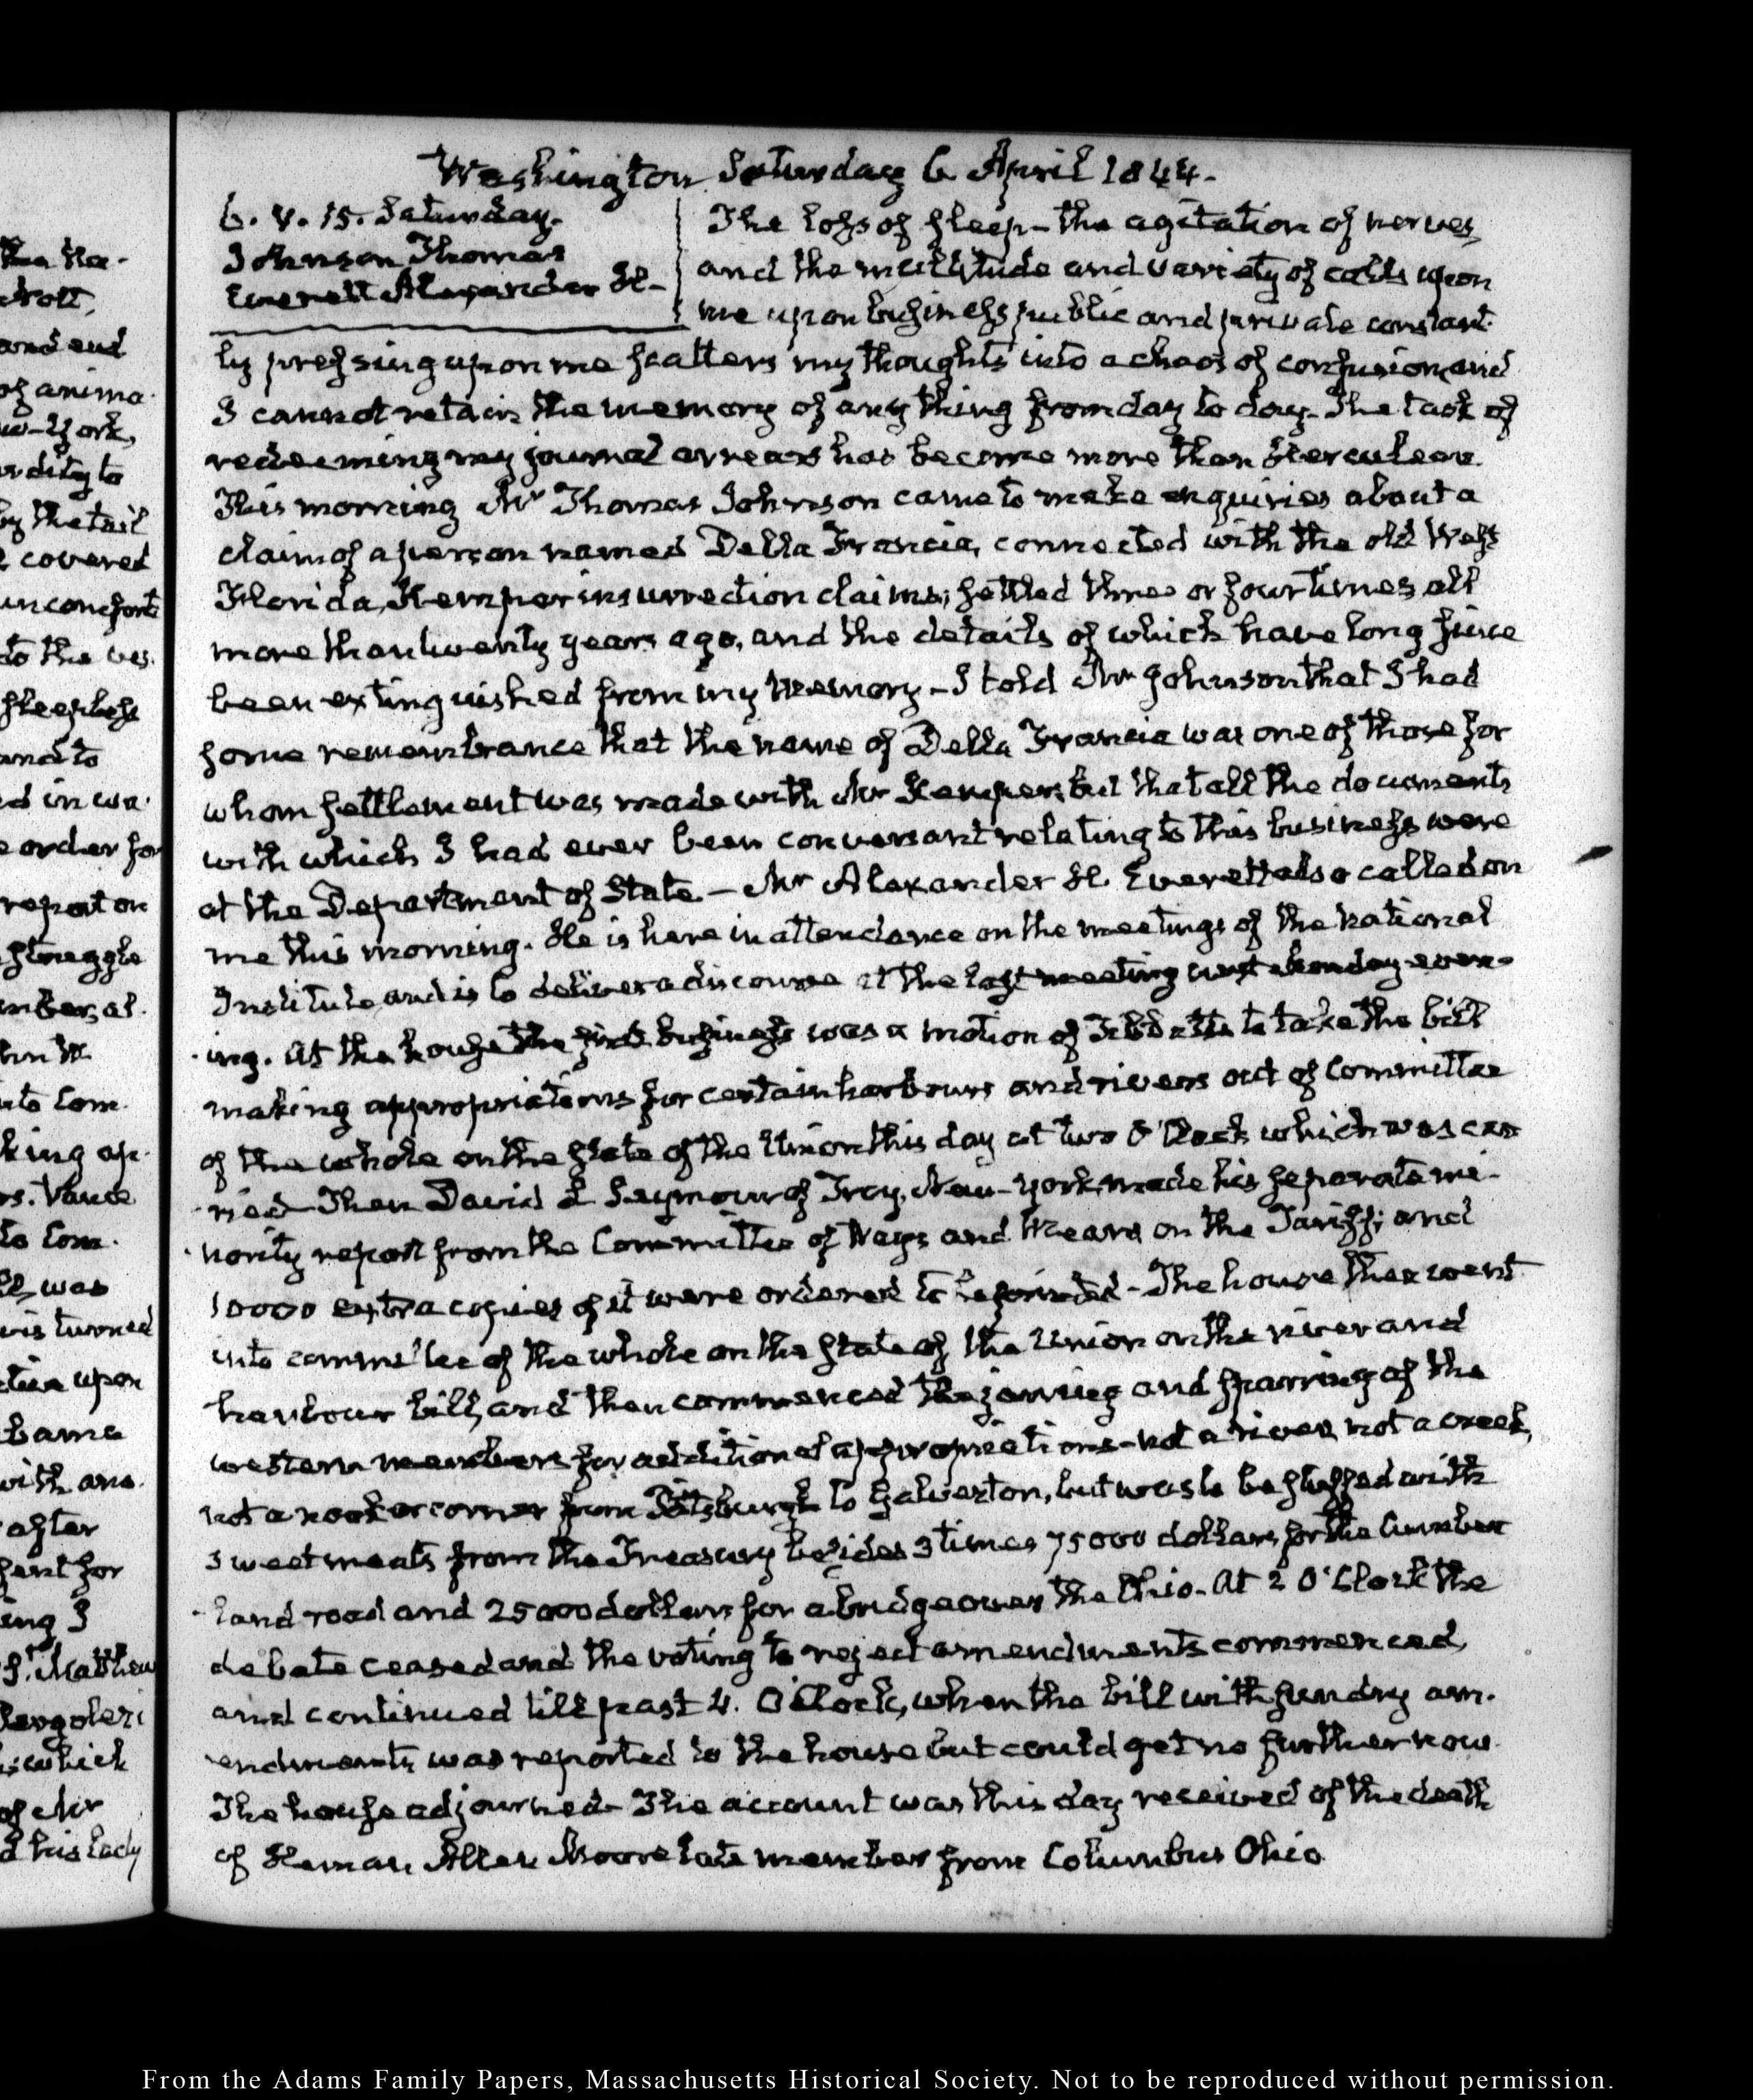 Washington Saturday 6 April 1844.
6. V. 15. Saturday.
Johnson Thomas
Everett Alexander H.
The loss of sleep - the agitation of nerves,
and the multitude and variety of calls upon
me upon business public and private constant-
ly pressing upon me scatters my thoughts into a chaos of confusion, and
I cannot retain the memory of any thing from day to day. The task of
redeeming my journal arrears has become more than Herculean.
This morning Mr Thomas Johnson came to make enquiries about a
claim of a person named Della Francia, connected with the old West
Florida, Kemper insurrection claims; settled three or four times all
more than twenty years ago, and the details of which have long since
been extinguished from my memory - I told Mr Johnson that I had
some remembrance that the name of Della Francia was one of those for
whom settlement was made with Mr Kemper; but that all the documents
with which I had ever been conversant relating to this business were
at the Department of State - Mr Alexander H. Everett also called on
me this morning. He is here in attendance on the meetings of the National
Institute, and is to deliver a discourse at the last meeting next Monday even-
ing. At the house the first business was a motion of Tibbatts to take the bill
making appropriations for certain harbours and rivers out of Committee
of the whole on the state of the Union this day at two O'Clock which was car-
ried Then David L Seymour of Troy, New-York, made his separate mi-
nority report from the Committee of Ways and Means on the Tariff; and
10000 extra copies of it were ordered to be printed - The house then went
into committee of the whole on the state of the Union on the river and
harbour bill, and then commenced the jarring and sparring of the
western members for additional appropriations - not a river, not a creek,
not a nook or corner from Pittsburgh to Galveston, but was to be stuffed with
sweetmeats from the Treasury besides 3 times 75000 dollars for the Cumber
land road and 25000 dollars for a bridge over the Ohio. At 2 O'Clock the
debate ceased and the voting to reject amendments commenced,
and continued till past 4. O'Clock, when the bill with sundry am-
endments was reported to the house but could get no further now.
The house adjourned - The account was this day received of the death
of Heman Allen Moore late member from Columbus Ohio
From the Adams Family Papers, Massachusetts Historical Society. Not to be reproduced without permission.